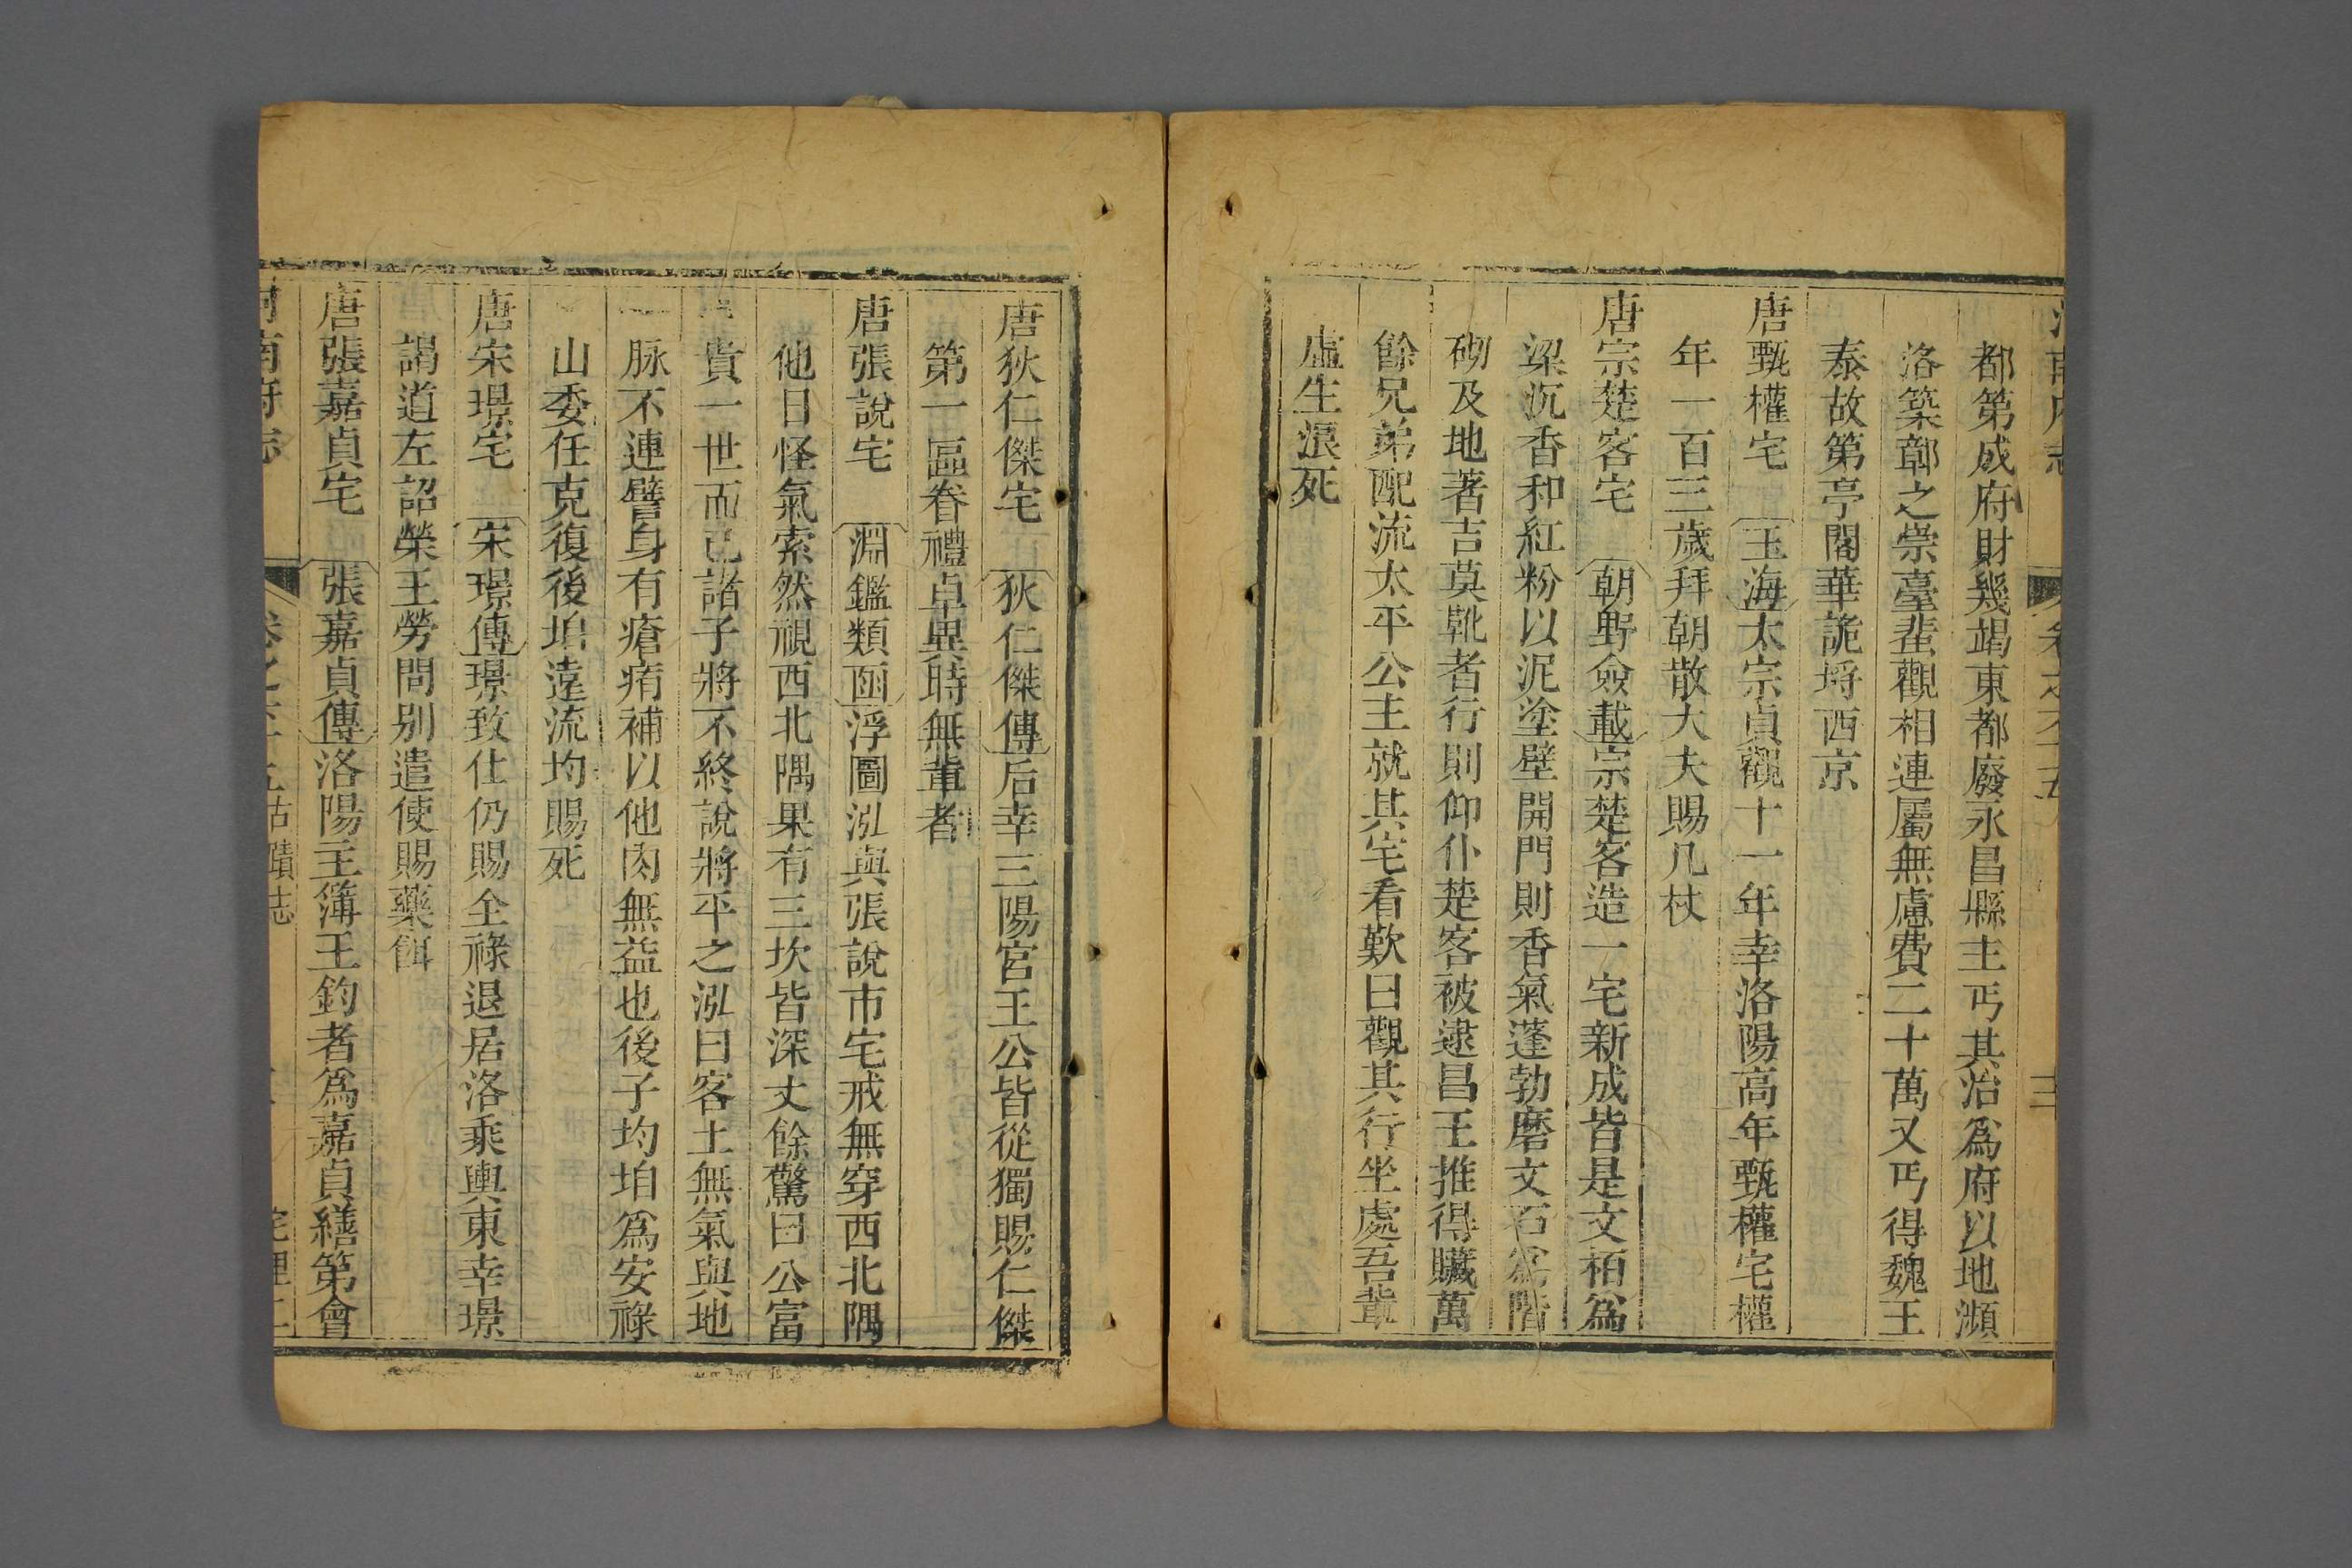 都第成府財幾竭東都廢永昌縣主丐其治爲府以地瀕
洛築鄣之崇臺蜚觀相連屬無慮費二十萬又丐得魏王
泰故第亭閣華詭埒西京
唐甄權宅 玉海太宗貞觀十一年幸洛陽高年甄權宅權
年一百三歲拜朝散大夫賜几杖
唐宗楚客宅 朝野僉載宗楚客造一宅新成皆是文栢爲
梁沉香和紅粉以泥塗壁開門則香氣蓬勃磨文石爲階
砌及地著吉莫靴者行則仰仆楚客被逮昌王推得贓萬
餘兄弟配流太平公主就其宅看歎曰觀其行坐處吾軰
虛生浪死
唐狄仁傑宅 狄仁傑傳后幸三陽宮王公皆從獨賜仁傑
第一區眷禮卓異時無軰者
唐張說宅 淵鑑類函浮圖泓與張說市宅戒無穿西北隅
他日怪氣索然視西北隅果有三坎皆深丈餘驚曰公富
貴一世而已諸子將不終說將平之泓曰客土無氣與地
脉不連譬身有瘡痏補以他肉無益也後子均垍爲安祿
山委任克復後垍遠流均賜死
唐宋璟宅 宋璟傳璟致仕仍賜全祿退居洛乘輿東幸璟
謁道左詔榮王勞問别遣使賜藥餌
唐張嘉貞宅 張嘉貞傳洛陽主簿王鈞者爲嘉貞繕第會
河南府志 卷之 古蹟志 宅里二